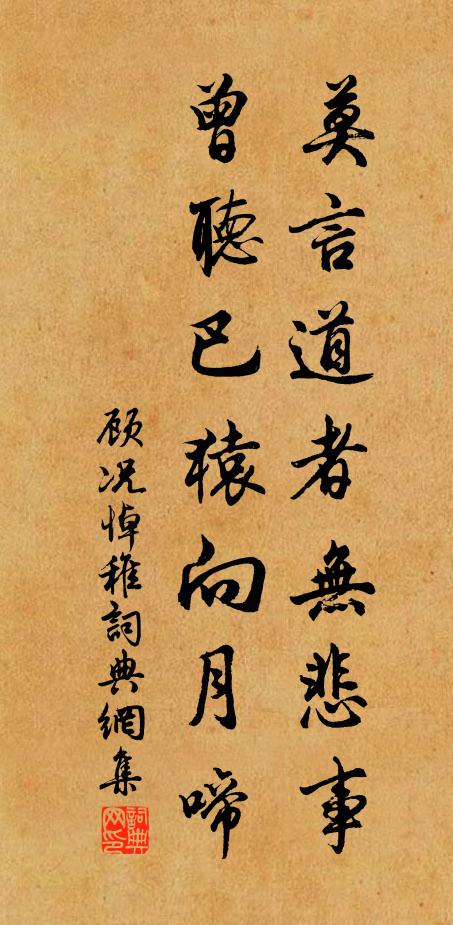 莫言道者無悲事
曾聽巴猿向月啼
顾况悼稚詞典網集
詞典网印